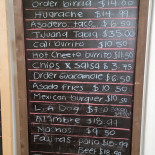 Order birria $14.00
Huarache $14.
Asadero taco $3.50
Tijuana Tapia $35.00
Cali burrito $10.50
Hot Cheeto burrito $11.50
Chips x Salsa $3.95
Order Guacamole $6.50
Asada fries $10.50
Mexican hamburger $10
L.A Dog $9.00
Alambre $15.
Nachos $9.50
Flautas papa $15.99
Beef $18.